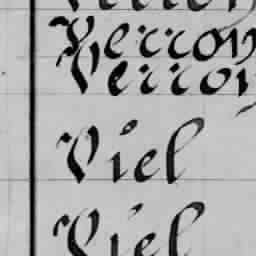 Verron
Verron
Verron
Viel
Viel